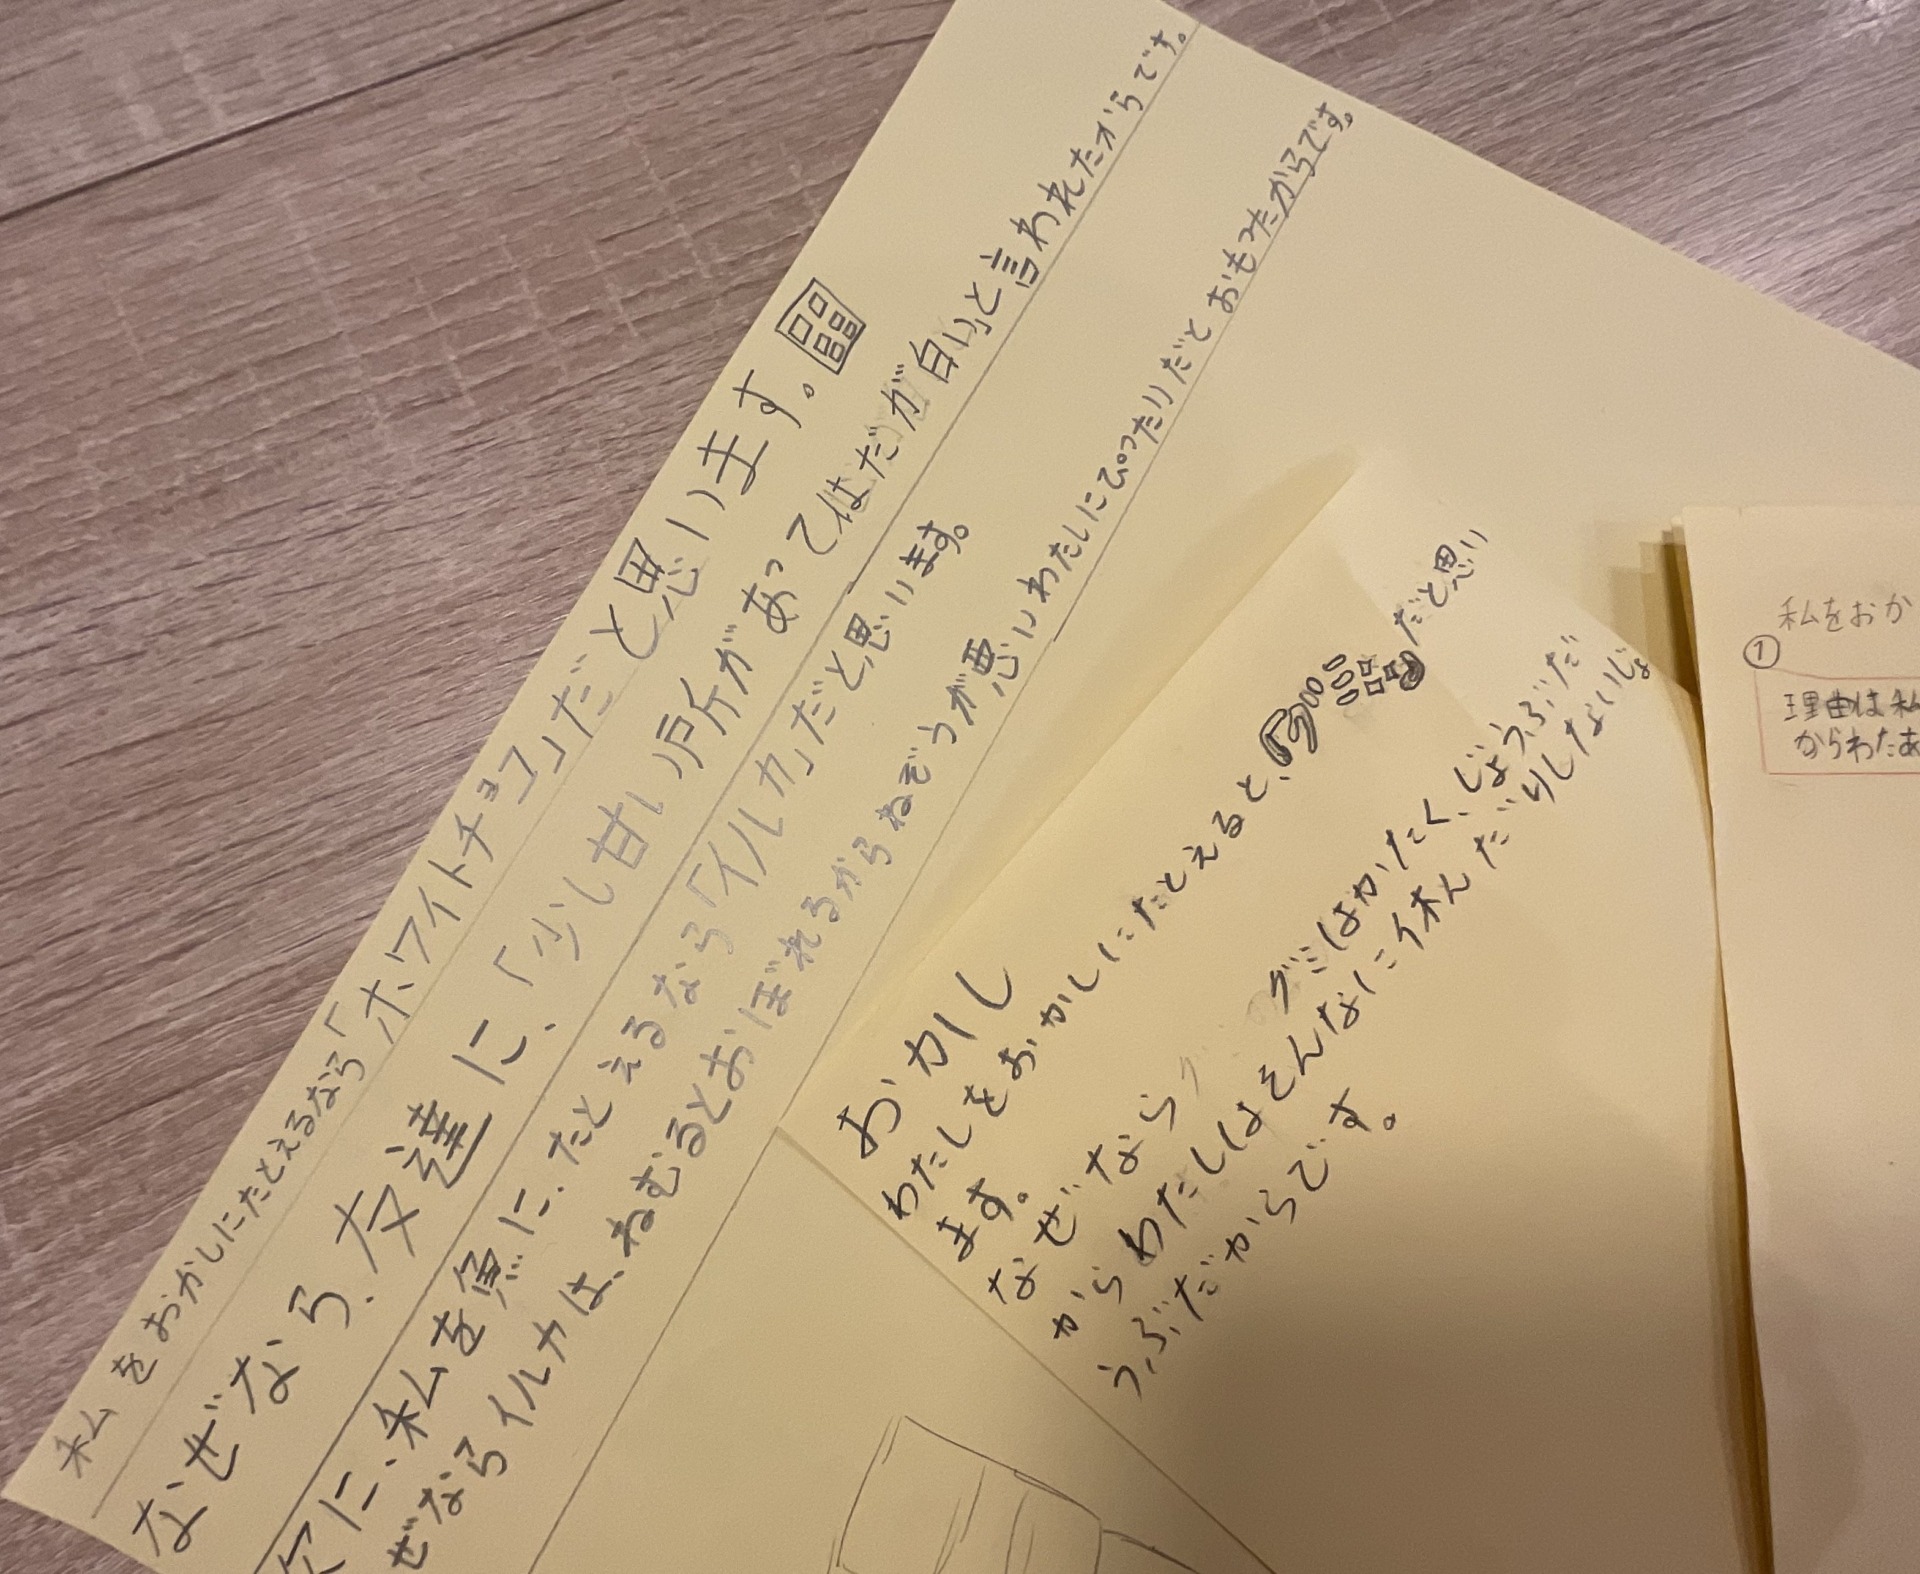 私をおかしにたとえるなら「ホワイトチョコ」だと思います。
なぜなら、友達に、「少し甘い所があってはだが白い」と言われたからです。
次に、私を魚に、たとえるなら「イルカ」だと思います。
ぜならイルカは、ねむるとおぼれるからねぞうが悪いわたしにぴったりだとおもったからです。
おかし
わたしをおかしにたとえると、だと思い
ます。
なぜならグミはかたく、じょうぶだ
からわたしはそんなに休んだりしないじょ
うぶだからです。
私をおか
①
理由は私
からわたあ